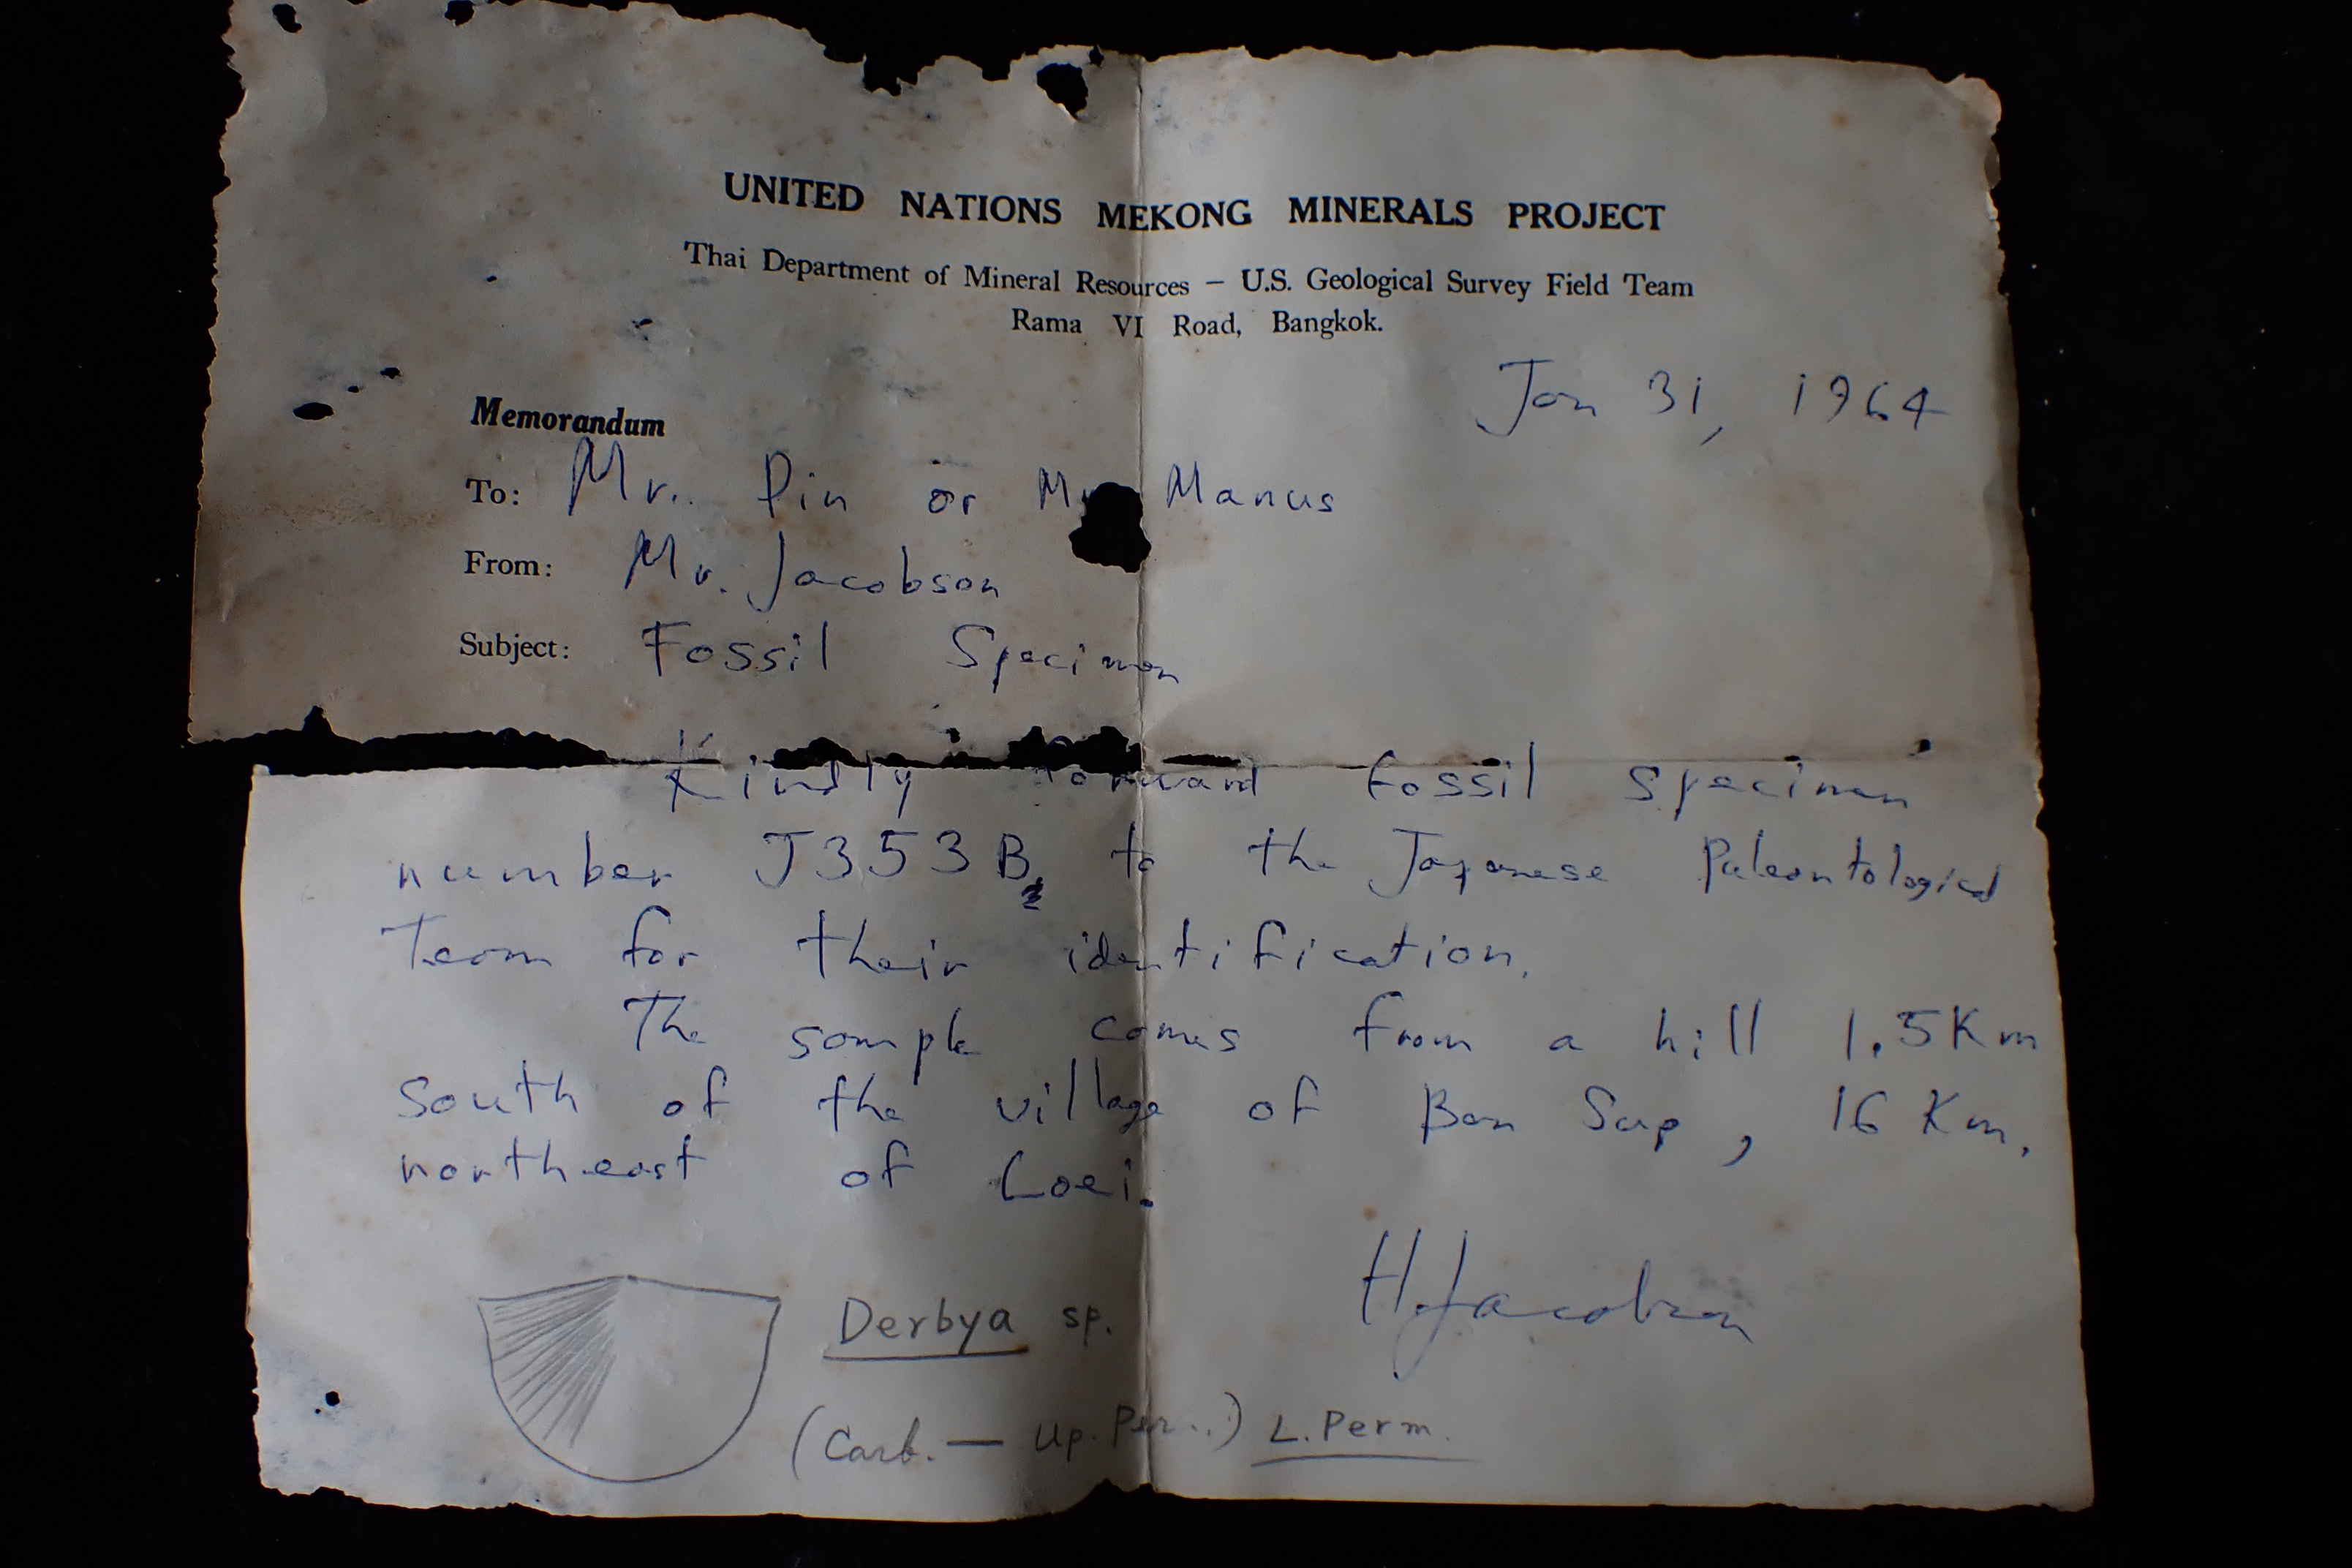 UNITED NATIONS MEKONG MINERALS PROJECT
Thai Department of Mineral Resources – U.S. Geological Survey Field Team
Rama VI Road, Bangkok.
Jan 31, 1964
Memorandum
To: Mr. Pin or Manus
From: Mr. Jacobson
Subject: Fossil Specimen
Kindly forward fossil specimen
number J353B to the Japanese Paleontological
Team for their identification.
The sample comes from a hill 1.5Km
South of the village of Ban Sup, 16 Km.
northeast of Loei.
H. Jacobson
Derbya sp.
(Carb. — Up. Per..) L. Perm.